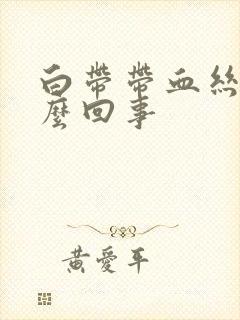 白帶帶血絲
麼回事
黃愛平